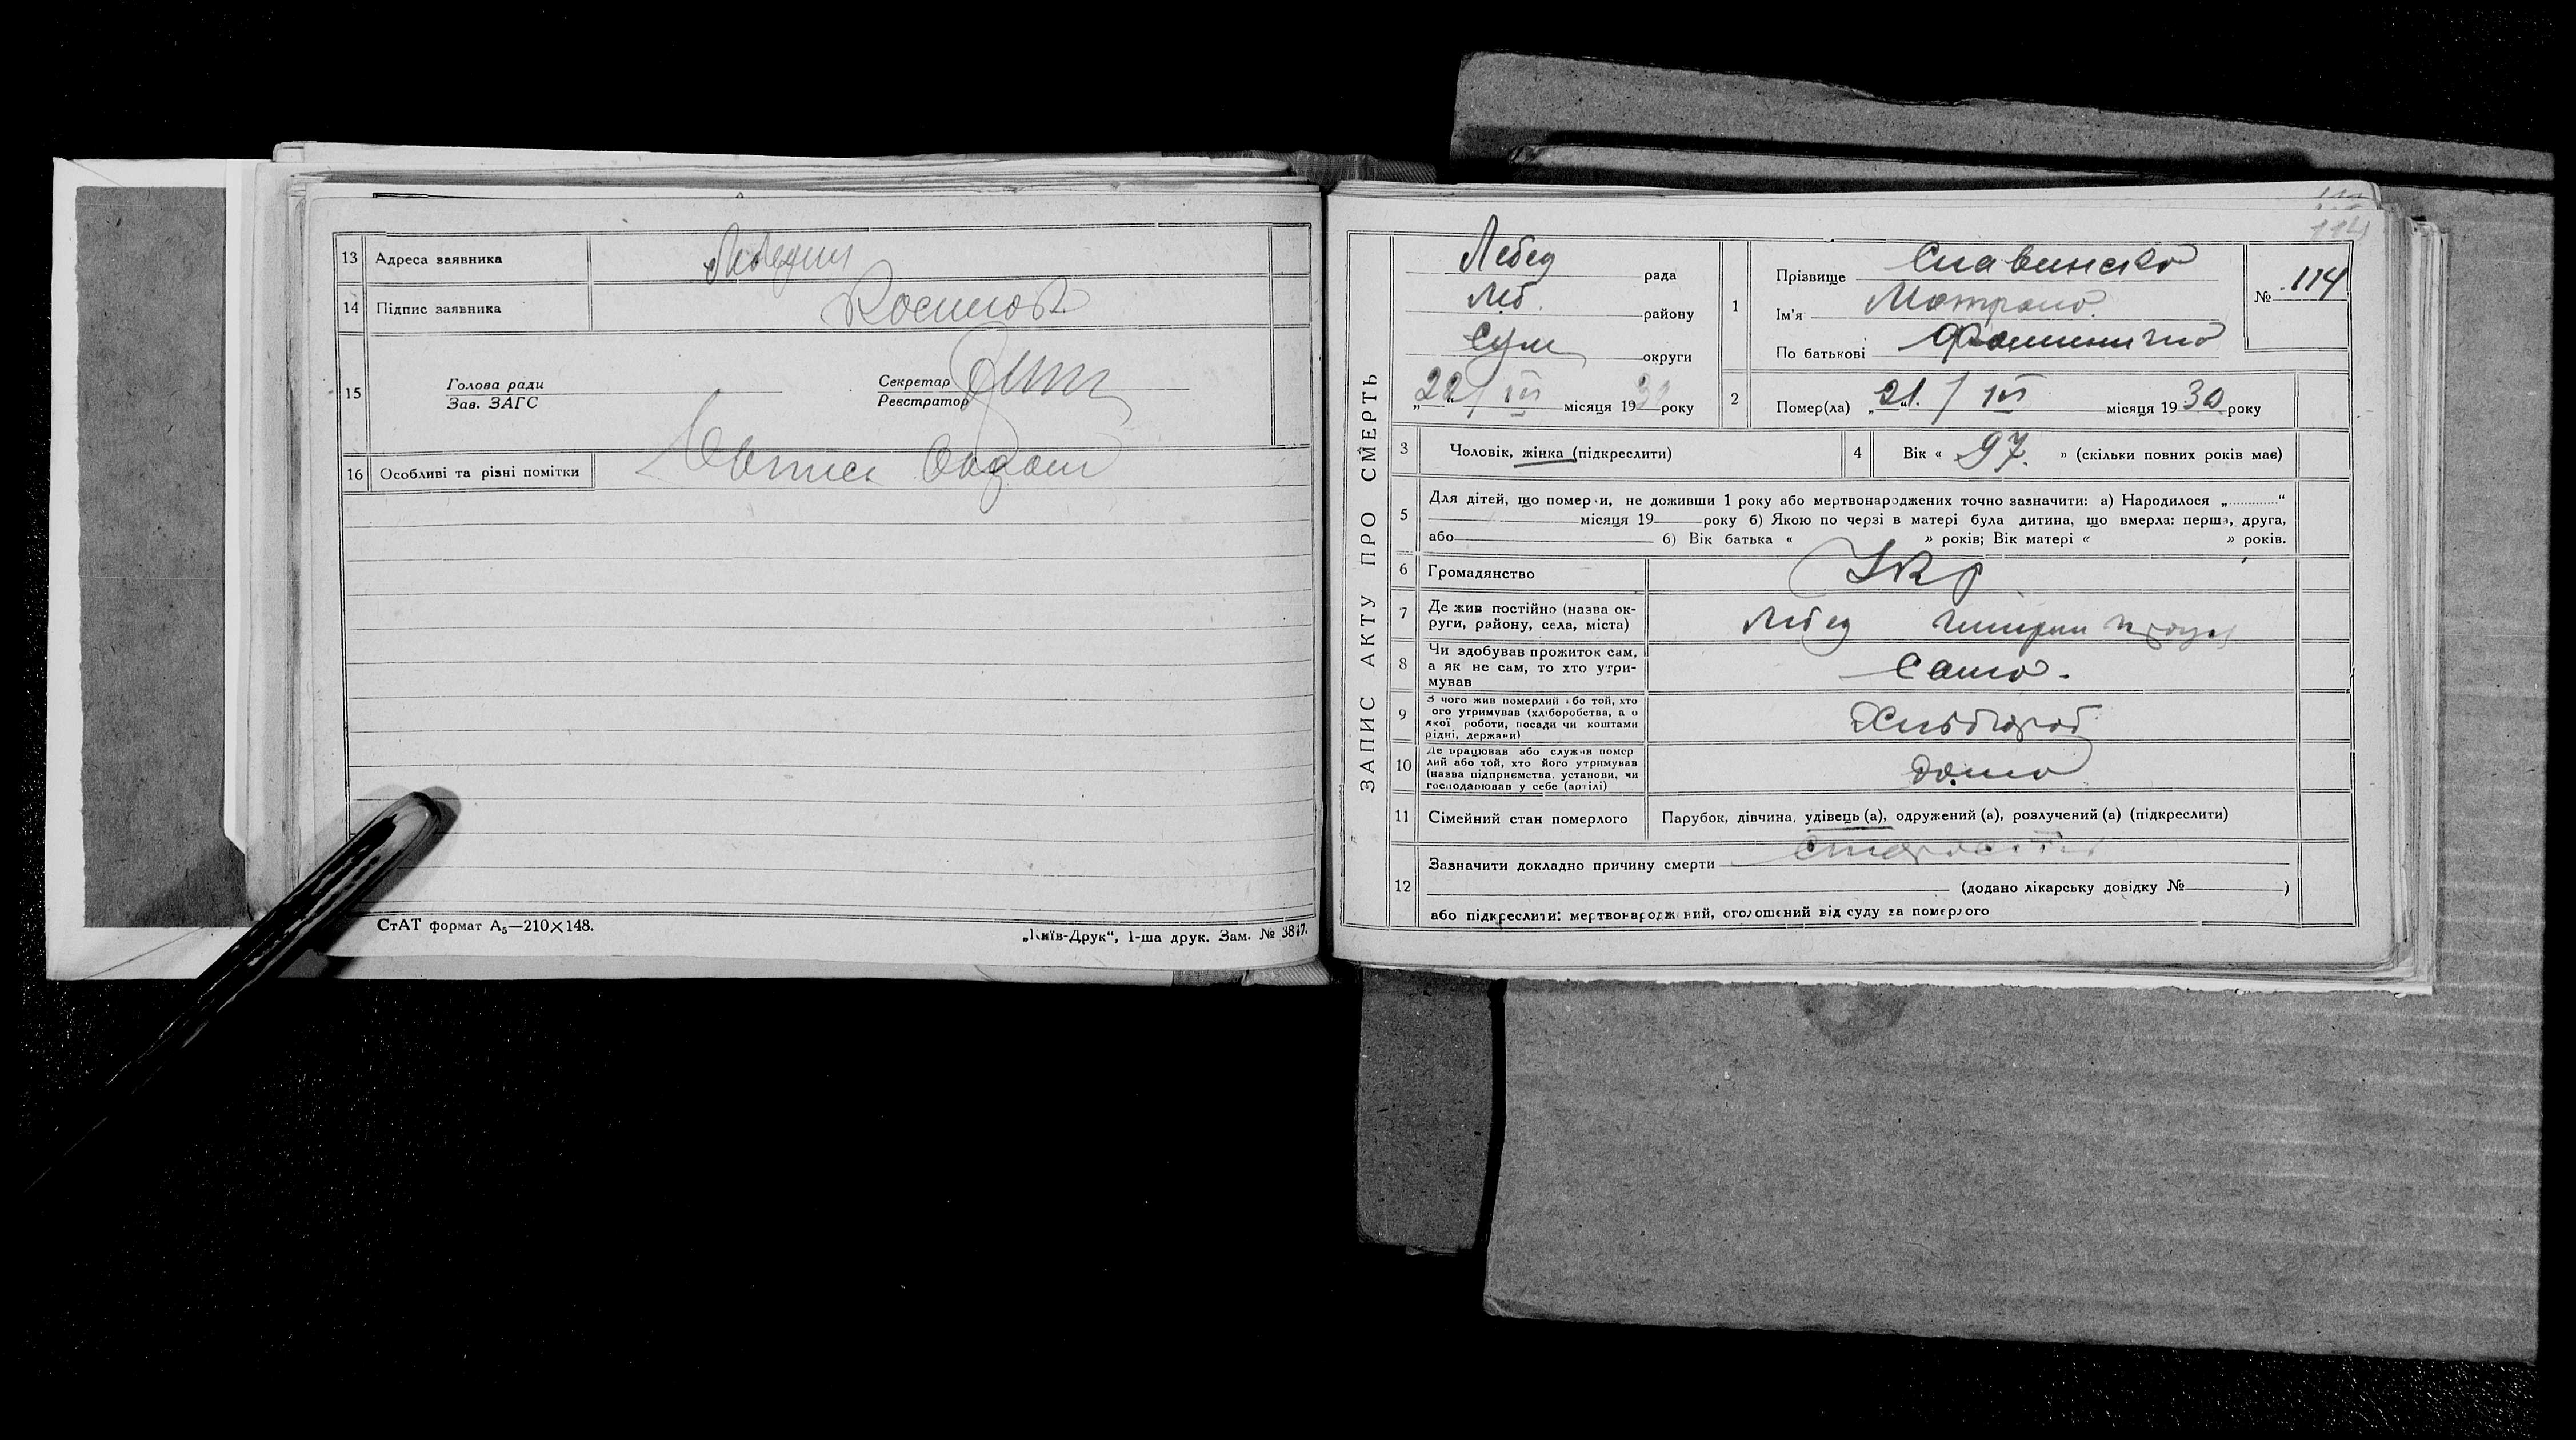 13 Адреса заявника Лебедин
14 Підпис заявника
15 Голова ради Секретар
Зав. ЗАГС Реєстратор
16 Особливі та різні помітки
СтАТ формат А₅—210×148.
„Київ-Друк“, 1-ша друк. Зам. № 3847.
114
ЗАПИС АКТУ ПРО СМЕРТЬ
Лебед рада
Леб. району
Сум округи
„22/ III місяця 1930 року
1 Прізвище Славинська
Ім'я Мотрона
По батькові
№ 114
2 Помер(ла) „21./ III місяця 1930 року
3 Чоловік, жінка (підкреслити)
4 Вік « 97. » (скільки повних років має)
5 Для дітей, що померли, не доживши 1 року або мертвонароджених точно зазначити: а) Народилося „..............“
місяця 19 року б) Якою по черзі в матері була дитина, що вмерла: перша, друга,
або б) Вік батька « » років; Вік матері « » років.
6 Громадянство Укр
7 Де жив постійно (назва ок-
руги, району, села, міста) Лебед
8 Чи здобував прожиток сам,
а як не сам, то хто утри-
мував Сама.
9 З чого жив померлий або той, хто
ого утримував (хліборобства, а о
якої роботи, посади чи коштами
рідні, держави) Хлібороб
10 Де працював або служив помер
лий або той, хто його утримував
(назва підприємства, установи, чи
господарював у себе (артілі) дома
11 Сімейний стан померлого Парубок, дівчина, удівець (а), одружений (а), розлучений (а) (підкреслити)
12 Зазначити докладно причину смерти старость
(додано лікарську довідку № )
або підкреслити: мертвонароджений, оголошений від суду за померлого